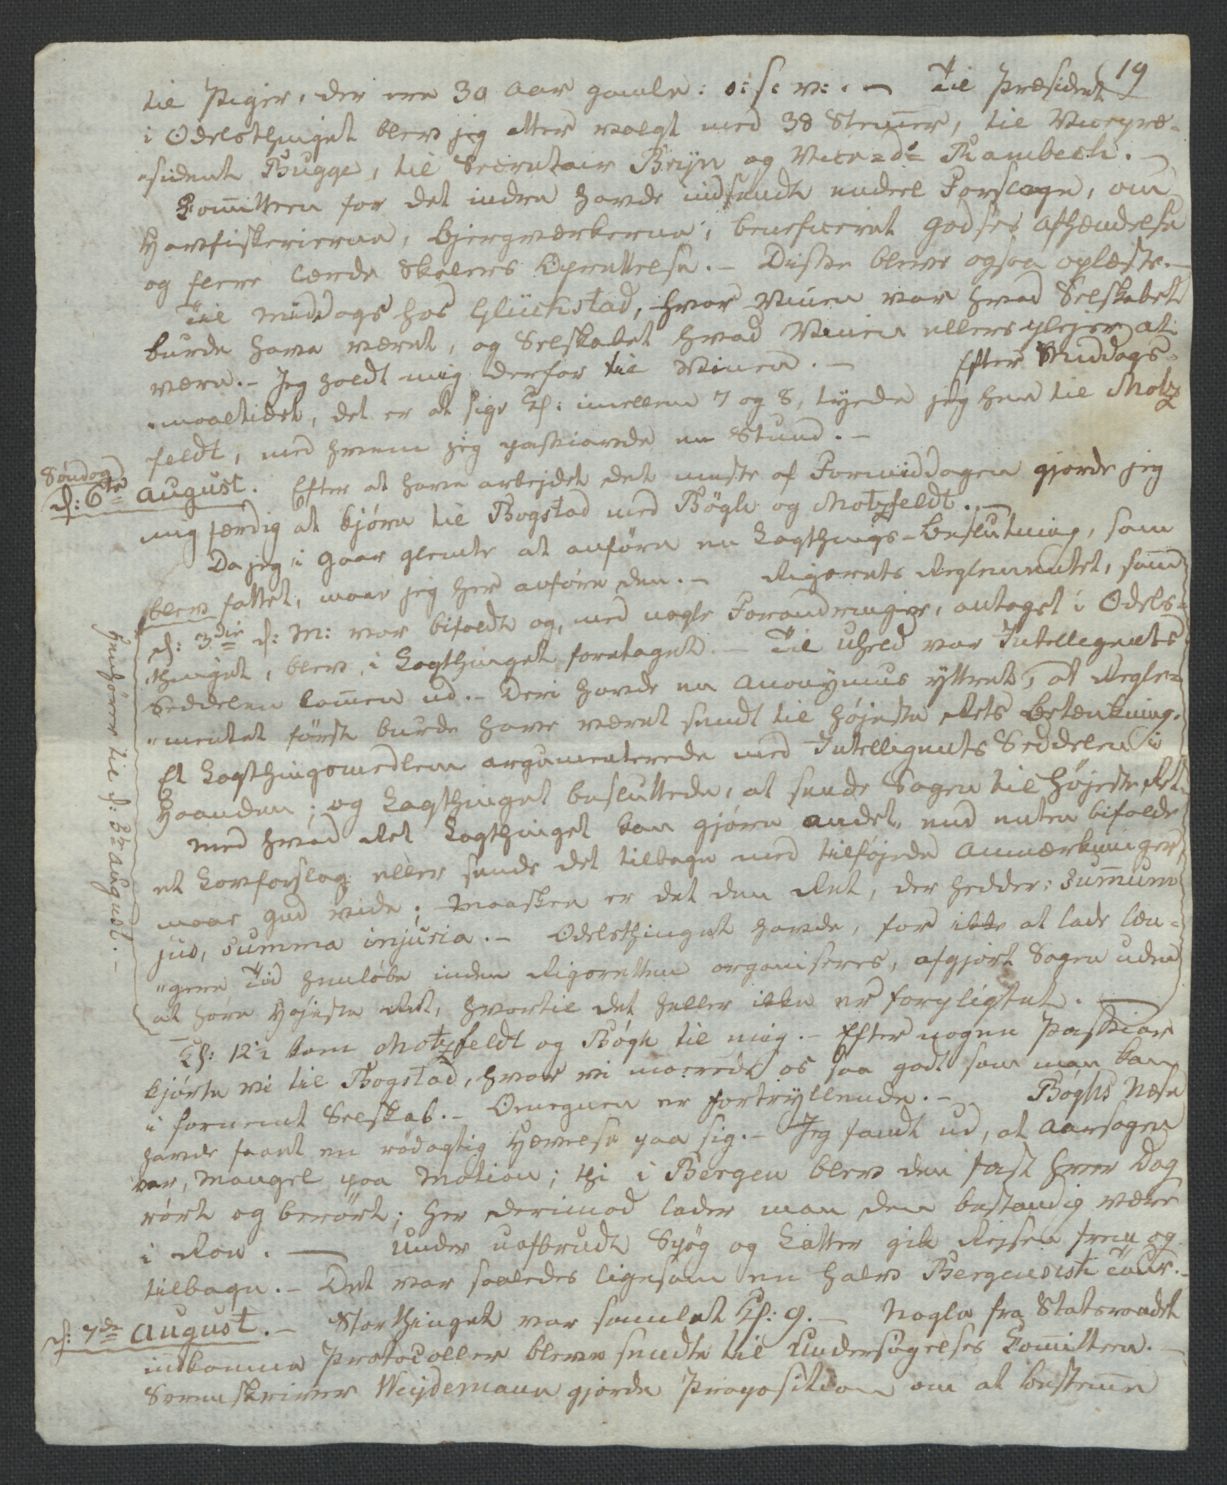 19
til Piger, der ere 30 Aar gamle: o: s: v: . — Til Præsident
i Odelsthinget blev jeg atter valgt med 38 Stemer, til Vicepræ-
sident Bugge, til Secretair Bryn og Vice=do= Rambech. —
Comitteen for det indre havde indsendt endeel Forslage, om
Havfiskerierne, Bjergværkerne, beneficeret Godses Afhændelse
og flere lærde Skolers Oprettelse. — Disse bleve ogsaa oplæste. —
Til Middags hos Glückstad, hvor Vinen var hvad Selskabet
burde have været, og Selskabet hvad Vinen ellers plejer at
være. — Jeg holdt mig derfor til Vinen. — Efter Middags-
maaltidet, det er at sige Kl: imellem 7 og 8, tyede jeg hen til Motz
feldt, med hvem jeg passiarede en Stund. —
Søndag
d: 6te August. Efter at have arbejdet det meste af Formiddagen gjorde jeg
mig færdig at kjøre til Bogstad med Bøgh og Motzfeldt. —
Da jeg i Gaar glemte at anføre en Lagthings-Beslutning, som
blev fattet, maae jeg her anføre den. — Rigsrets Reglementet, som
d: 3die d: M: var bifaldt og, med nogle Forandringer, antaget i Odels-
thinget, blev i Lagthinget foretaget. — Til uheld var Intelligents
Seddelen komen ud. — Deri havde en Anonymus yttret, at Regle-
mentet først burde have været sendt til Højeste Rets Betænkning.
Et Lagthingsmedlem argumenterede med Intelligents Seddelen i
Haanden; og Lagthinget besluttede, at sende Sagen til Højeste Ret.
Med hvad Ret Lagthinget kan gjøre andet, end enten bifalde
et Lovforslag eller sende det tilbage med tilføjede Anmærkninger,
maae Gud vide; Maaskee er det den Ret, der hedder: Summum
jus, summa injuria. — Odelsthinget havde, for ikke at lade læn-
gere Tid henløbe inden Rigsretten organiseres, afgjort Sagen uden
at høre Højeste Ret, hvortil det heller ikke er forpligtet. —
Henhører til d: 5te August. —
Kl: 12½ kom Motzfeldt og Bøgh til mig. — Efter nogen Passiar
kjørte vi til Bogstad, hvor vi morede os saa godt som man kan
i fornemt Selskab. — Omegnen er fortryllende. — Bøghs Næse
havde faaet en rødagtig Hævelse paa sig. — Jeg fandt ud, at Aarsagen
var, Mangel paa Motion; thi i Bergen blev den fast hver Dag
rørt og berørt; her derimod lader man den bestandig være
i Roe. — Under uafbrudt Spøg og Latter gik Rejsen frem og
tilbage. — Det var saaledes ligesom en halv Bergensisk Tour. —
d: 7de August. — Storthinget var samlet Kl: 9. — Nogle fra Statsraadet
indkomne Protocoller bleve sendte til Undersøgelses Comitteen. —
Sorenskriver Weydemann gjorde Proposition om at bestemme